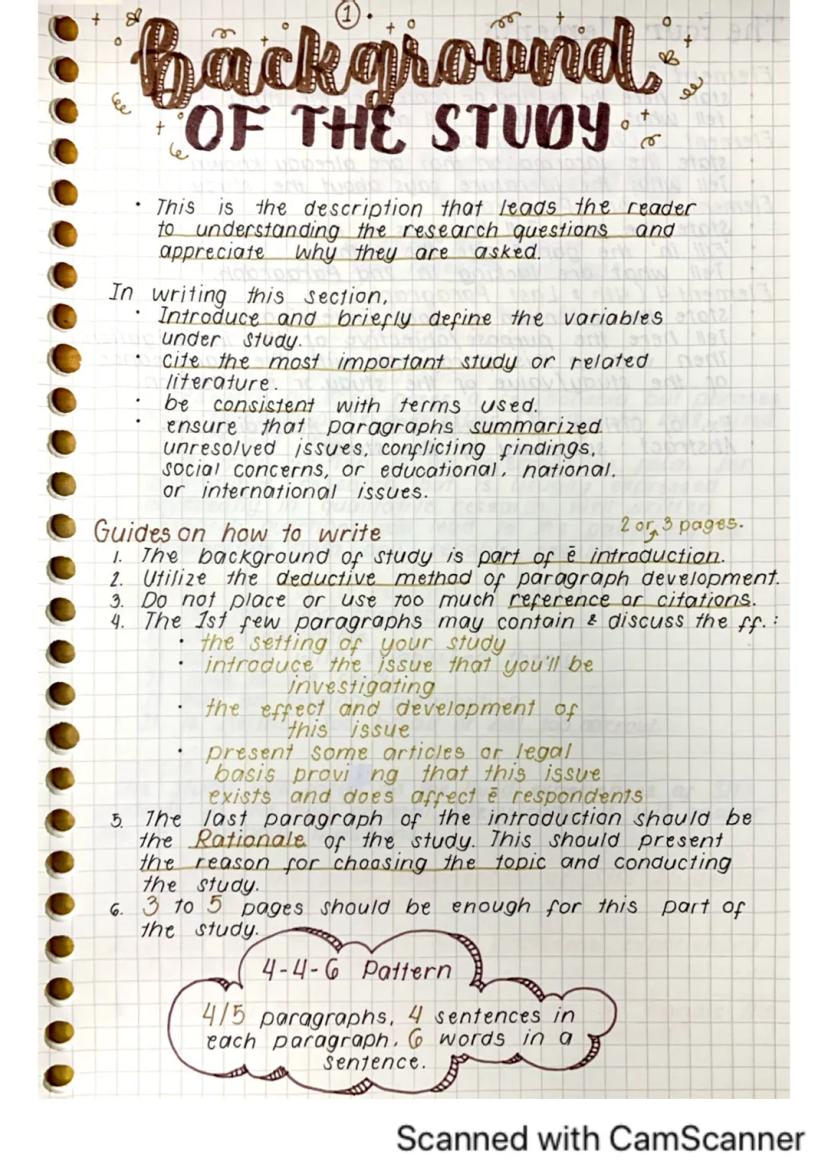 1
background
OF THE STUDY
• This is the description that leads the reader
to understanding the research questions and
appreciate why they are asked.
In writing this section,
• Introduce and briefly define the variables
under study.
• Cite the most important study or related
literature.
• be consistent with terms used.
• ensure that paragraphs summarized
unresolved issues, conflicting findings,
social concerns, or educational, national,
or international issues.
Guides on how to write
2 or 3 pages.
1. The background of study is part of ē introduction.
2. Utilize the deductive method of paragraph development.
3. Do not place or use too much reference or citations.
4. The 1st few paragraphs may contain & discuss the ff.:
• the setting of your study
• introduce the issue that you'll be
investigating
• the effect and development of
this issue
• present some articles or legal
basis provi ng that this issue
exists and does affect ē respondents
5. The last paragraph of the introduction should be
the Rationale of the study. This should present
the reason for choosing the topic and conducting
the study.
6. 3 to 5 pages should be enough for this part of
the study.
4-4-6 Pattern
4/5 paragraphs, 4 sentences in
each paragraph, 6 words in a
sentence.
Scanned with CamScanner